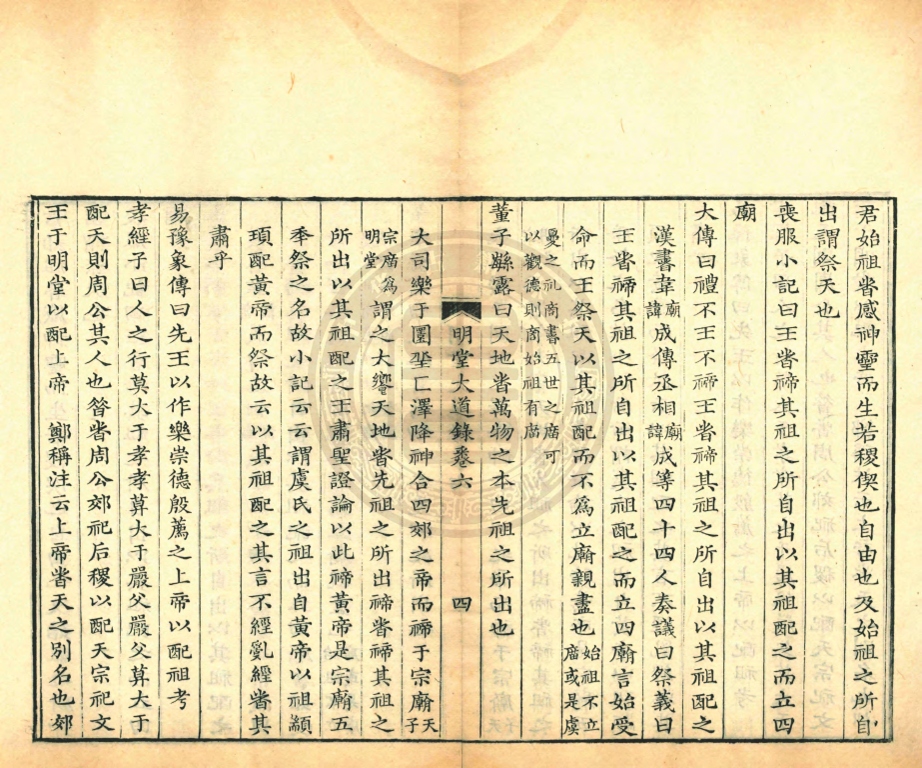 君始祖者感神靈而生若稷偰也自由也及始祖之所自
出謂祭天也
喪服小記曰王者禘其祖之所自出以其祖配之而立四
廟
大傳曰禮不王不禘王者禘其祖之所自出以其祖配之
漢書韋廟諱成傳丞相廟諱成等四十四人奏議曰祭義曰
王者禘其祖之所自出以其祖配之而立四廟言始受
命而王祭天以其祖配而不為立廟親盡也始祖不立廟或是虞
夏之礼商書五世之廟可
以觀德則商始祖有廟
董子緐露曰天地者萬物之本先祖之所出也
明堂大道錄卷六 四
大司樂于圜丠匚澤降神合四郊之帝而禘于宗廟天子
宗廟為明堂謂之大饗天地者先祖之所出禘者禘其祖之
所出以其祖配之王肅聖證論以此禘黃帝是宗廟五
秊祭之名故小記云云謂虞氏之祖出自黃帝以祖顓
頊配黃帝而祭故云以其祖配之其言不經亂經者其
肅乎
易豫象傳曰先王以作樂崇德殷薦之上帝以配祖考
孝經子曰人之行莫大于孝孝莫大于嚴父嚴父莫大于
配天則周公其人也昝者周公郊祀后稷以配天宗祀文
王于明堂以配上帝鄭稱注云上帝者天之別名也郊